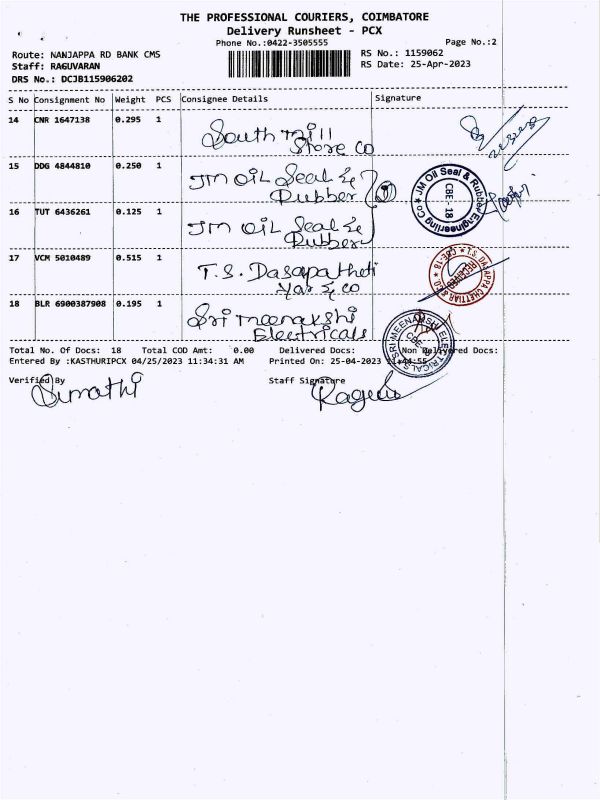 THE PROFESSIONAL COURIERS, COIMBATORE
Delivery Runsheet - PCX
Phone No.:0422-3505555
Page No.:2
Route: NANJAPPA RD BANK CMS
RS No.: 1159062
Staff: RAGUVARAN
RS Date: 25-Apr-2023
DRS No.: DCJB115906202
S No Consignment No Weight PCS Consignee Details Signature
14 CNR 1647138 0.295 1
South Mill
Store Co
15 DDG 4844810 0.250 1
JM Oil Seal &
Rubber
JM Oil Seal & Rubber Engineering Co
CBE - 18
16 TUT 6436261 0.125 1
JM Oil Seal &
Rubber
17 VCM 5010489 0.515 1
T.S. Dasapatheti
Yar & Co
RECEIVED
CBE-18
18 BLR 6900387908 0.195 1
Sri Meenakshi
Electricals
SRI MEENAKSHI ELECTRICALS
Total No. Of Docs: 18 Total COD Amt: 0.00 Delivered Docs: Non Delivered Docs:
Entered By :KASTHURIPCX 04/25/2023 11:34:31 AM Printed On: 25-04-2023 11:44:55
Verified By Staff Signature
Sumathi